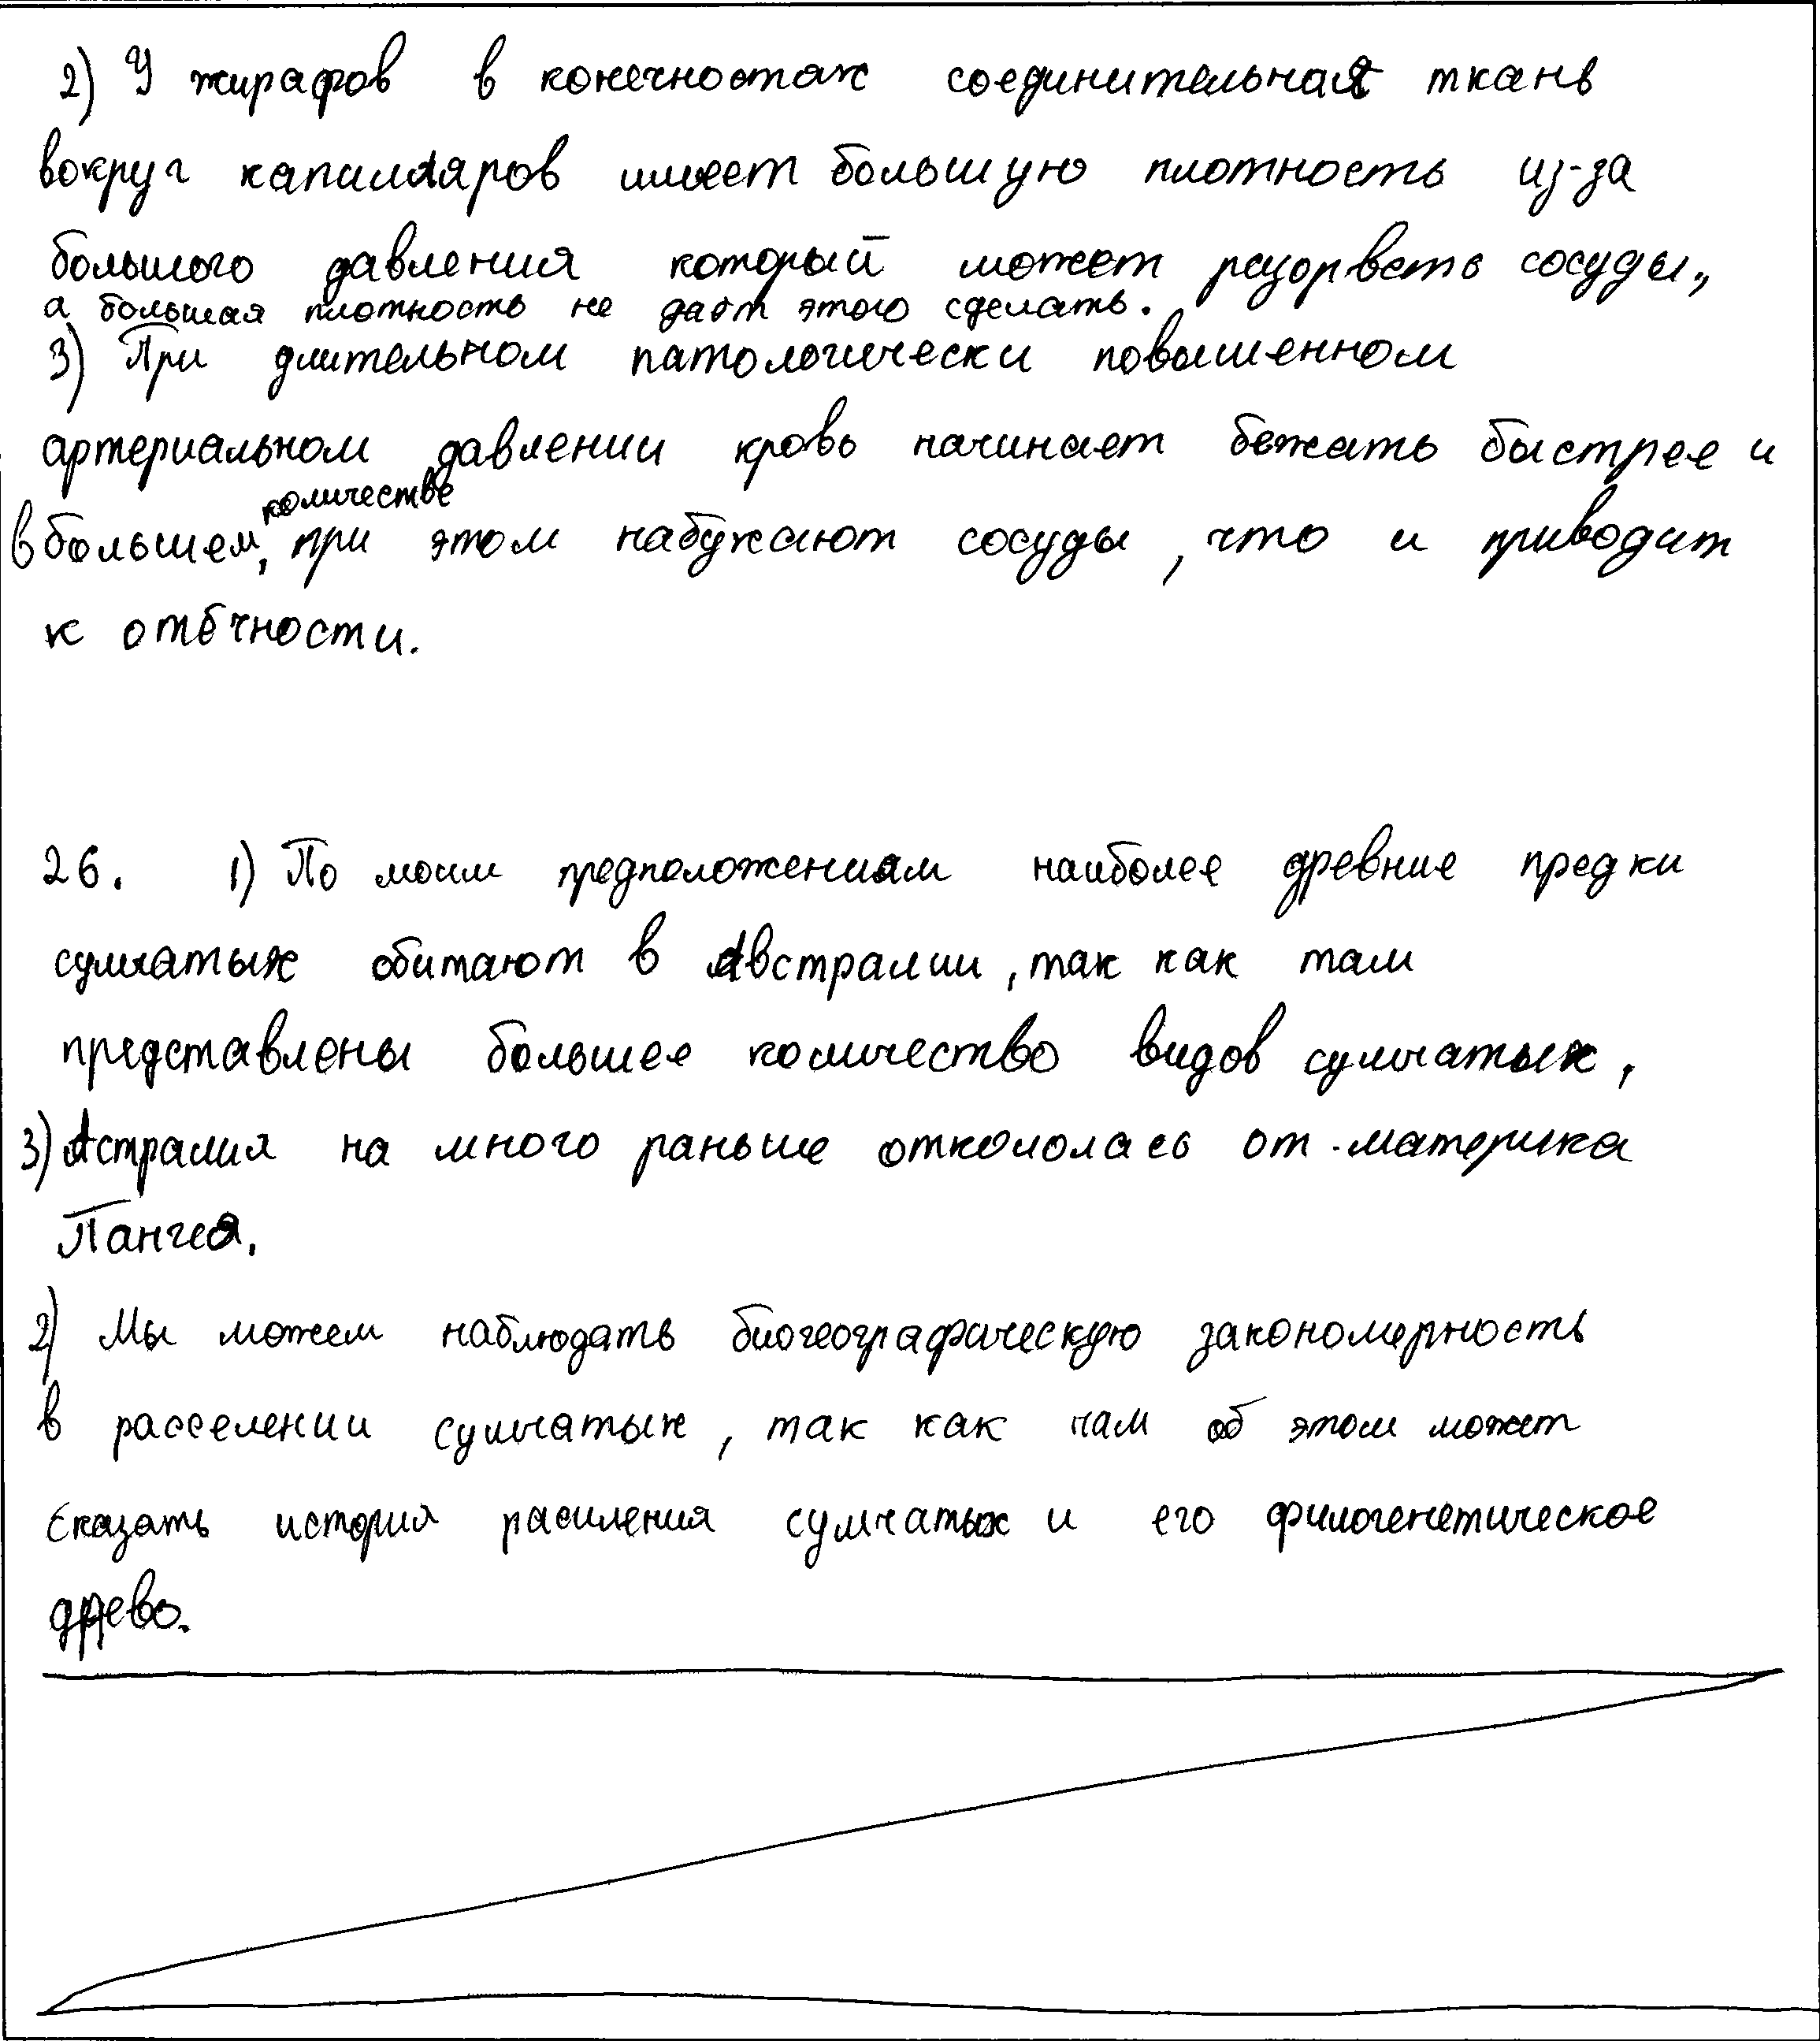 2) У жирафов в конечностях соединительная ткань
вокруг капилляров имеет большую плотность из-за
большого давления который может разорвать сосуды,
а большая плотность не даёт этого сделать.
3) При длительном патологически повышенном
артериальном давлении кровь начинает бежать быстрее и
в большем количестве, при этом набухают сосуды, что и приводит
к отёчности.
26. 1) По моим предположениям наиболее древние предки
сумчатых обитают в Австралии, так как там
представлены большее количество видов сумчатых,
3) Астралия на много раньше откололась от материка
Пангея.
2) Мы можем наблюдать биогеографическую закономерность
в расселении сумчатых, так как нам об этом может
сказать история расиления сумчатых и его филогенетическое
древо.